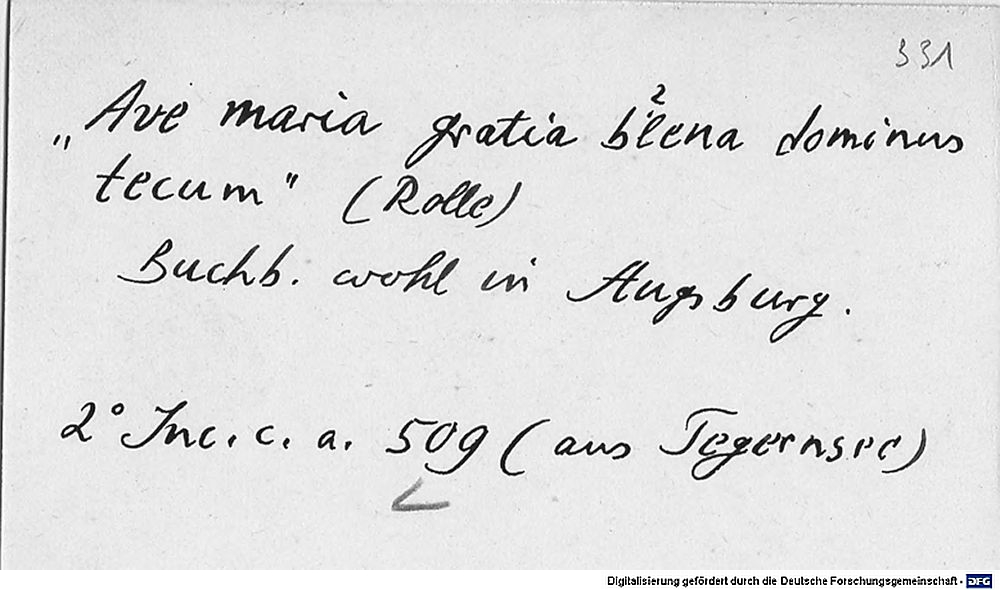 331
„Ave maria gratia blena dominus
2
tecum" (Rolle)
Buchb. wohl in Augsburg.
2° Inc. c. a. 509 (aus Tegernsee)
Digitalisierung gefördert durch die Deutsche Forschungsgemeinschaft - DFG